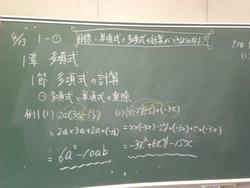 4/13 1-① 目標・単項式と多項式の計算ができるようになろう!!
P10
1章 多項式
1節 多項式の計算
① 多項式と単項式の乗除
例1 (1) 2a(3a-5b) (2) (x-2y+5)×(-3x)
=2a×3a+2a×(-5b) =x×(-3x)-2y×(-3x)+5×(-3x)
=6a²-10ab =-3x²+6xy-15x